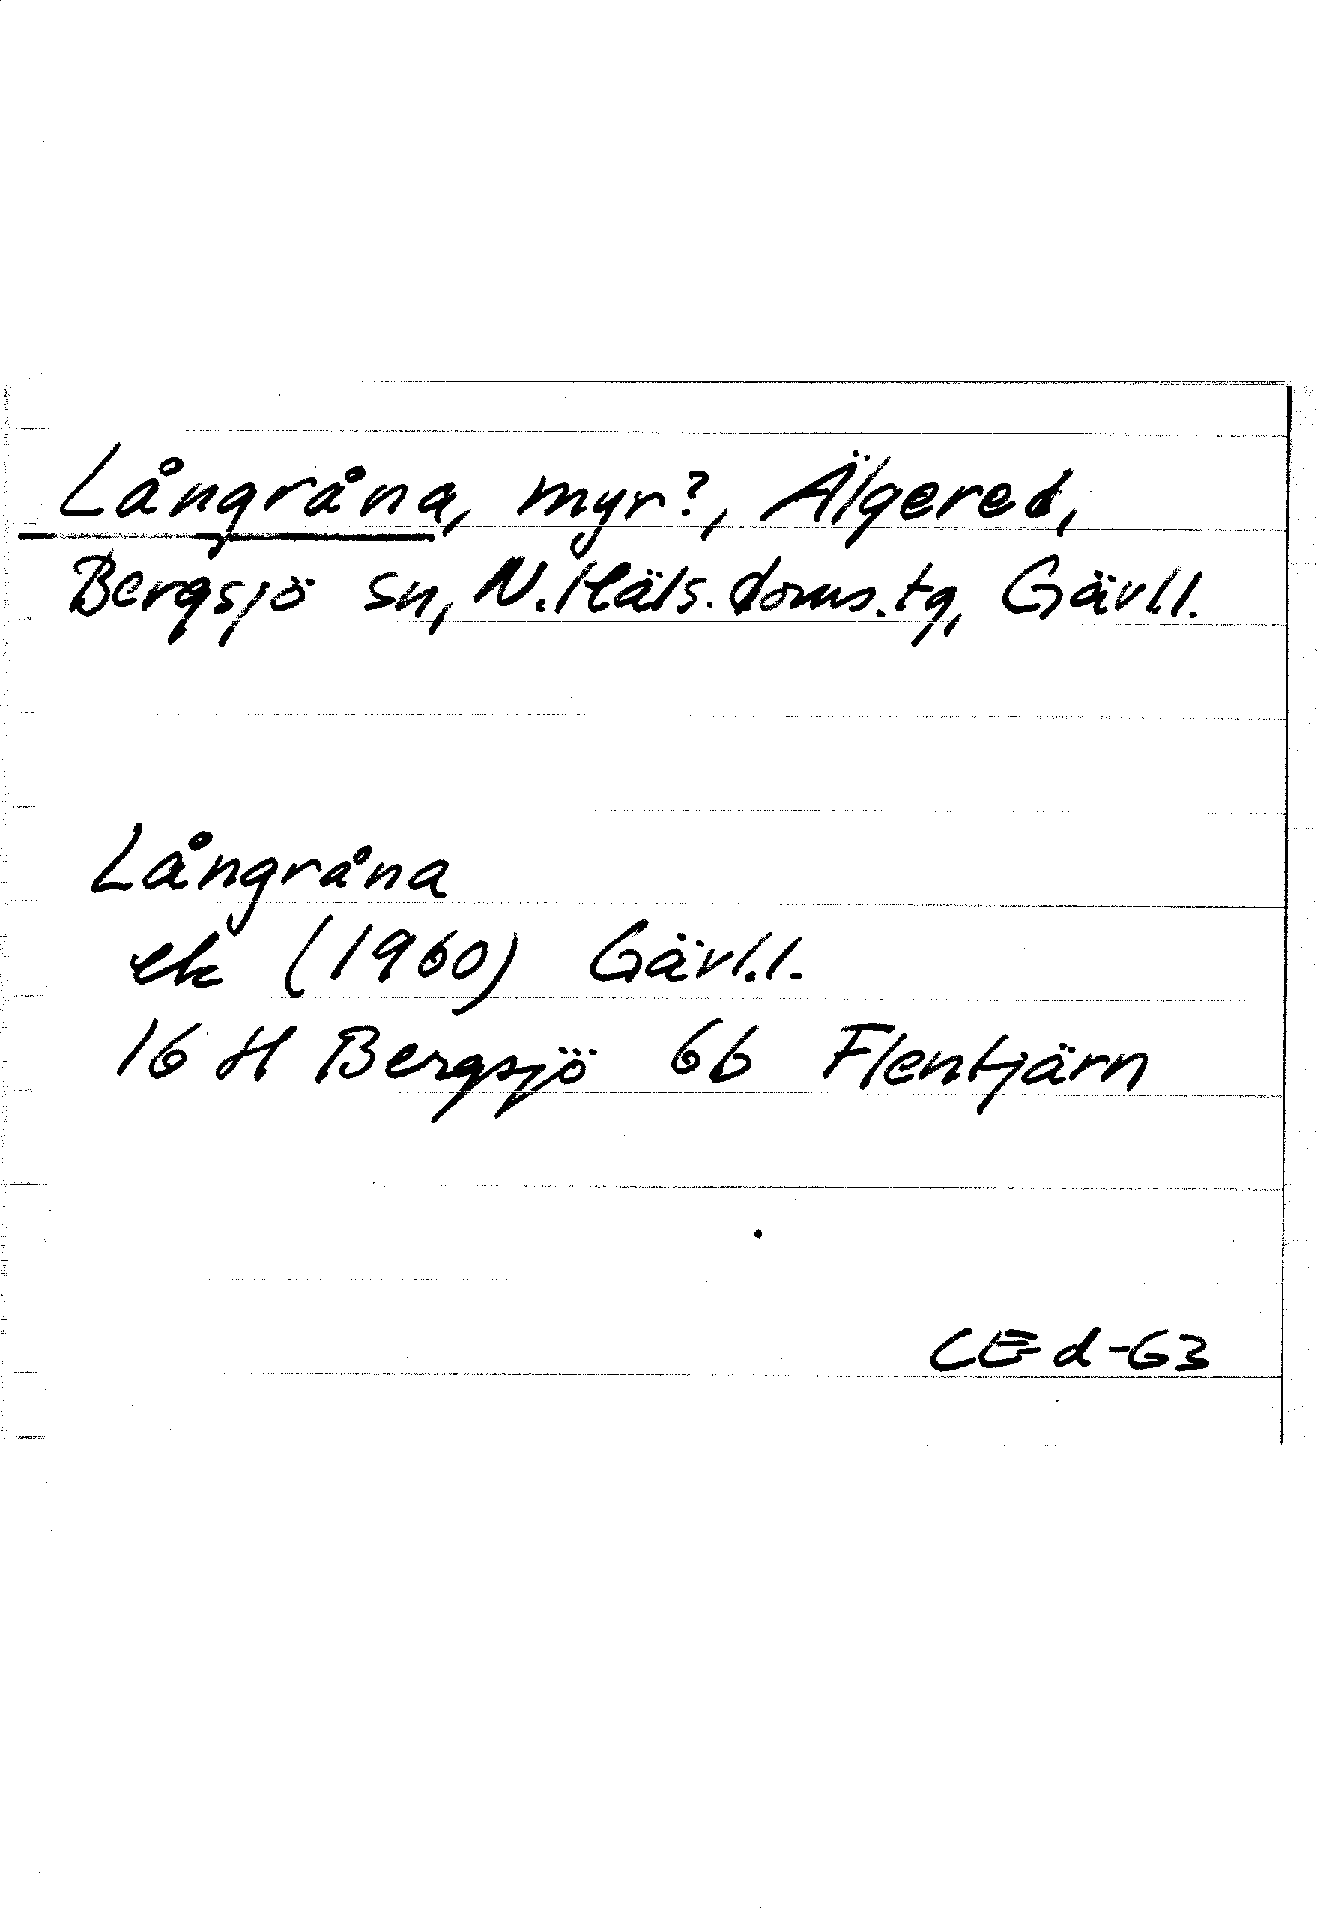 Långråna, myr?, Älgered,
Bergsjö sn, N. Häls. doms. tg, Gävl.l.
Långråna
ek (1960) Gävl.l.
16 H Bergsjö 6b Flentjärn
CEd-63